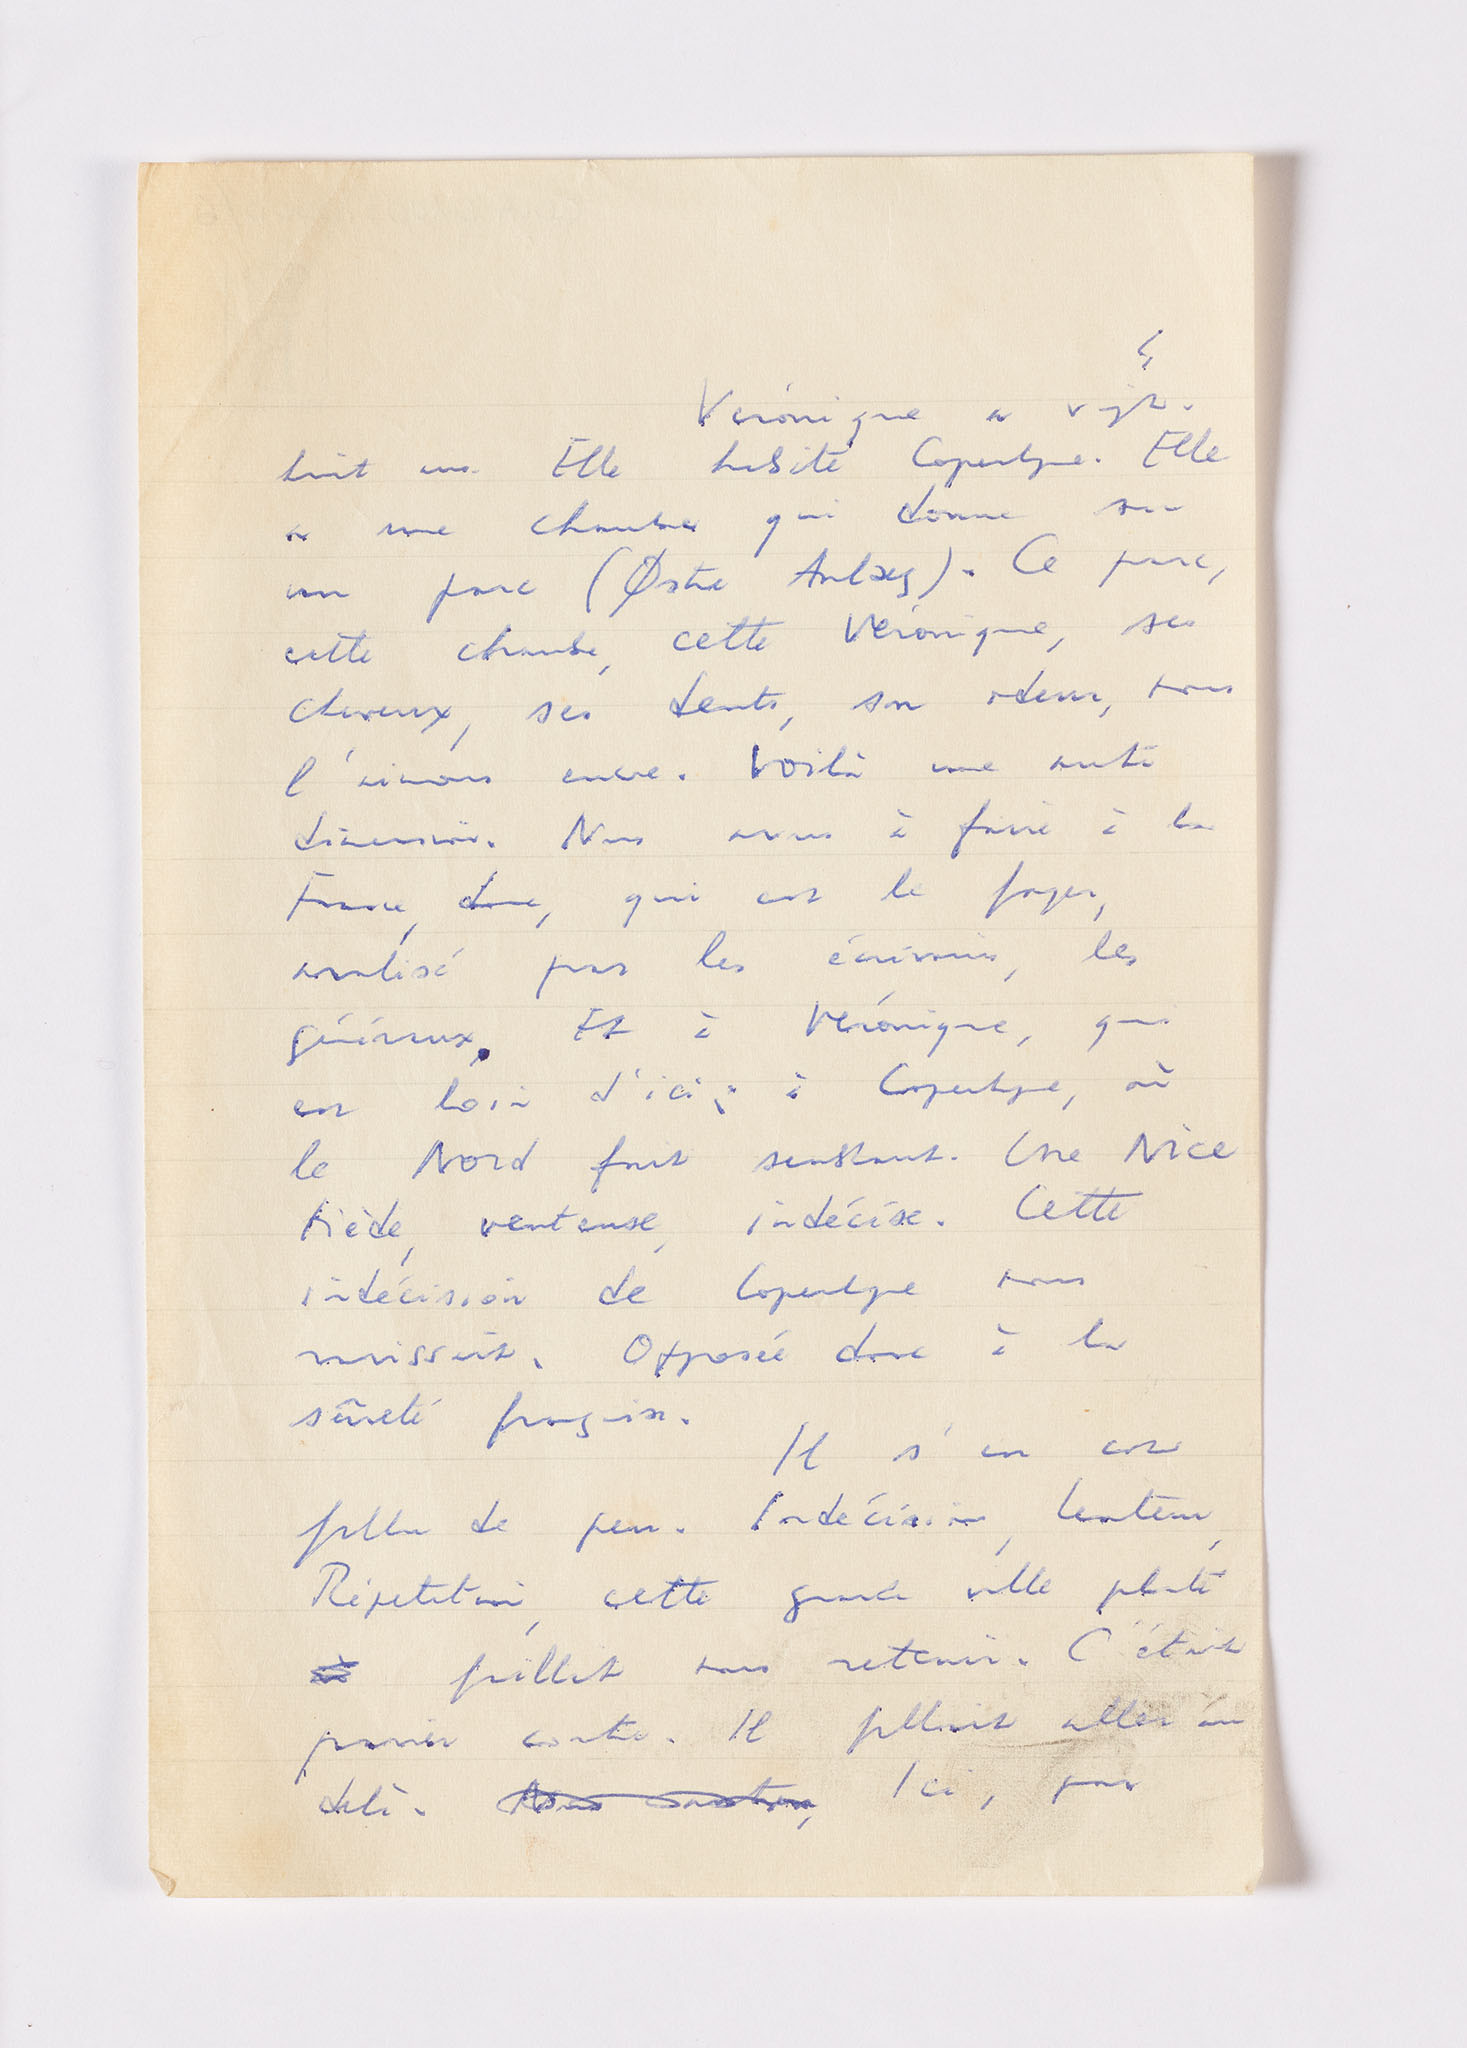 Véronique a vingt-
huit ans. Elle habite Copenhague. Elle
a une chambre qui donne sur
un parc (Østre Anlæg). Ce parc,
cette chambre, cette Véronique, ses
cheveux, ses dents, son odeur, nous
l'aimons encore. Voilà une autre
dimension. Nous avons à faire à la
France, donc, qui est le foyer,
par les écrivains, les
généraux. Et à Véronique, qui
est loin d'ici : à Copenhague, où
le Nord fait semblant. Une Nice
tiède, venteuse, indécise. Cette
indécision de Copenhague nous
ravissait. Opposée donc à la
sûreté française.
Il s'en est
fallu de peu. Indécision, lenteur,
Répétition, cette grande ville plate
faillit nous retenir. C'était
parier contre. Il fallait aller au
delà. Ici, par